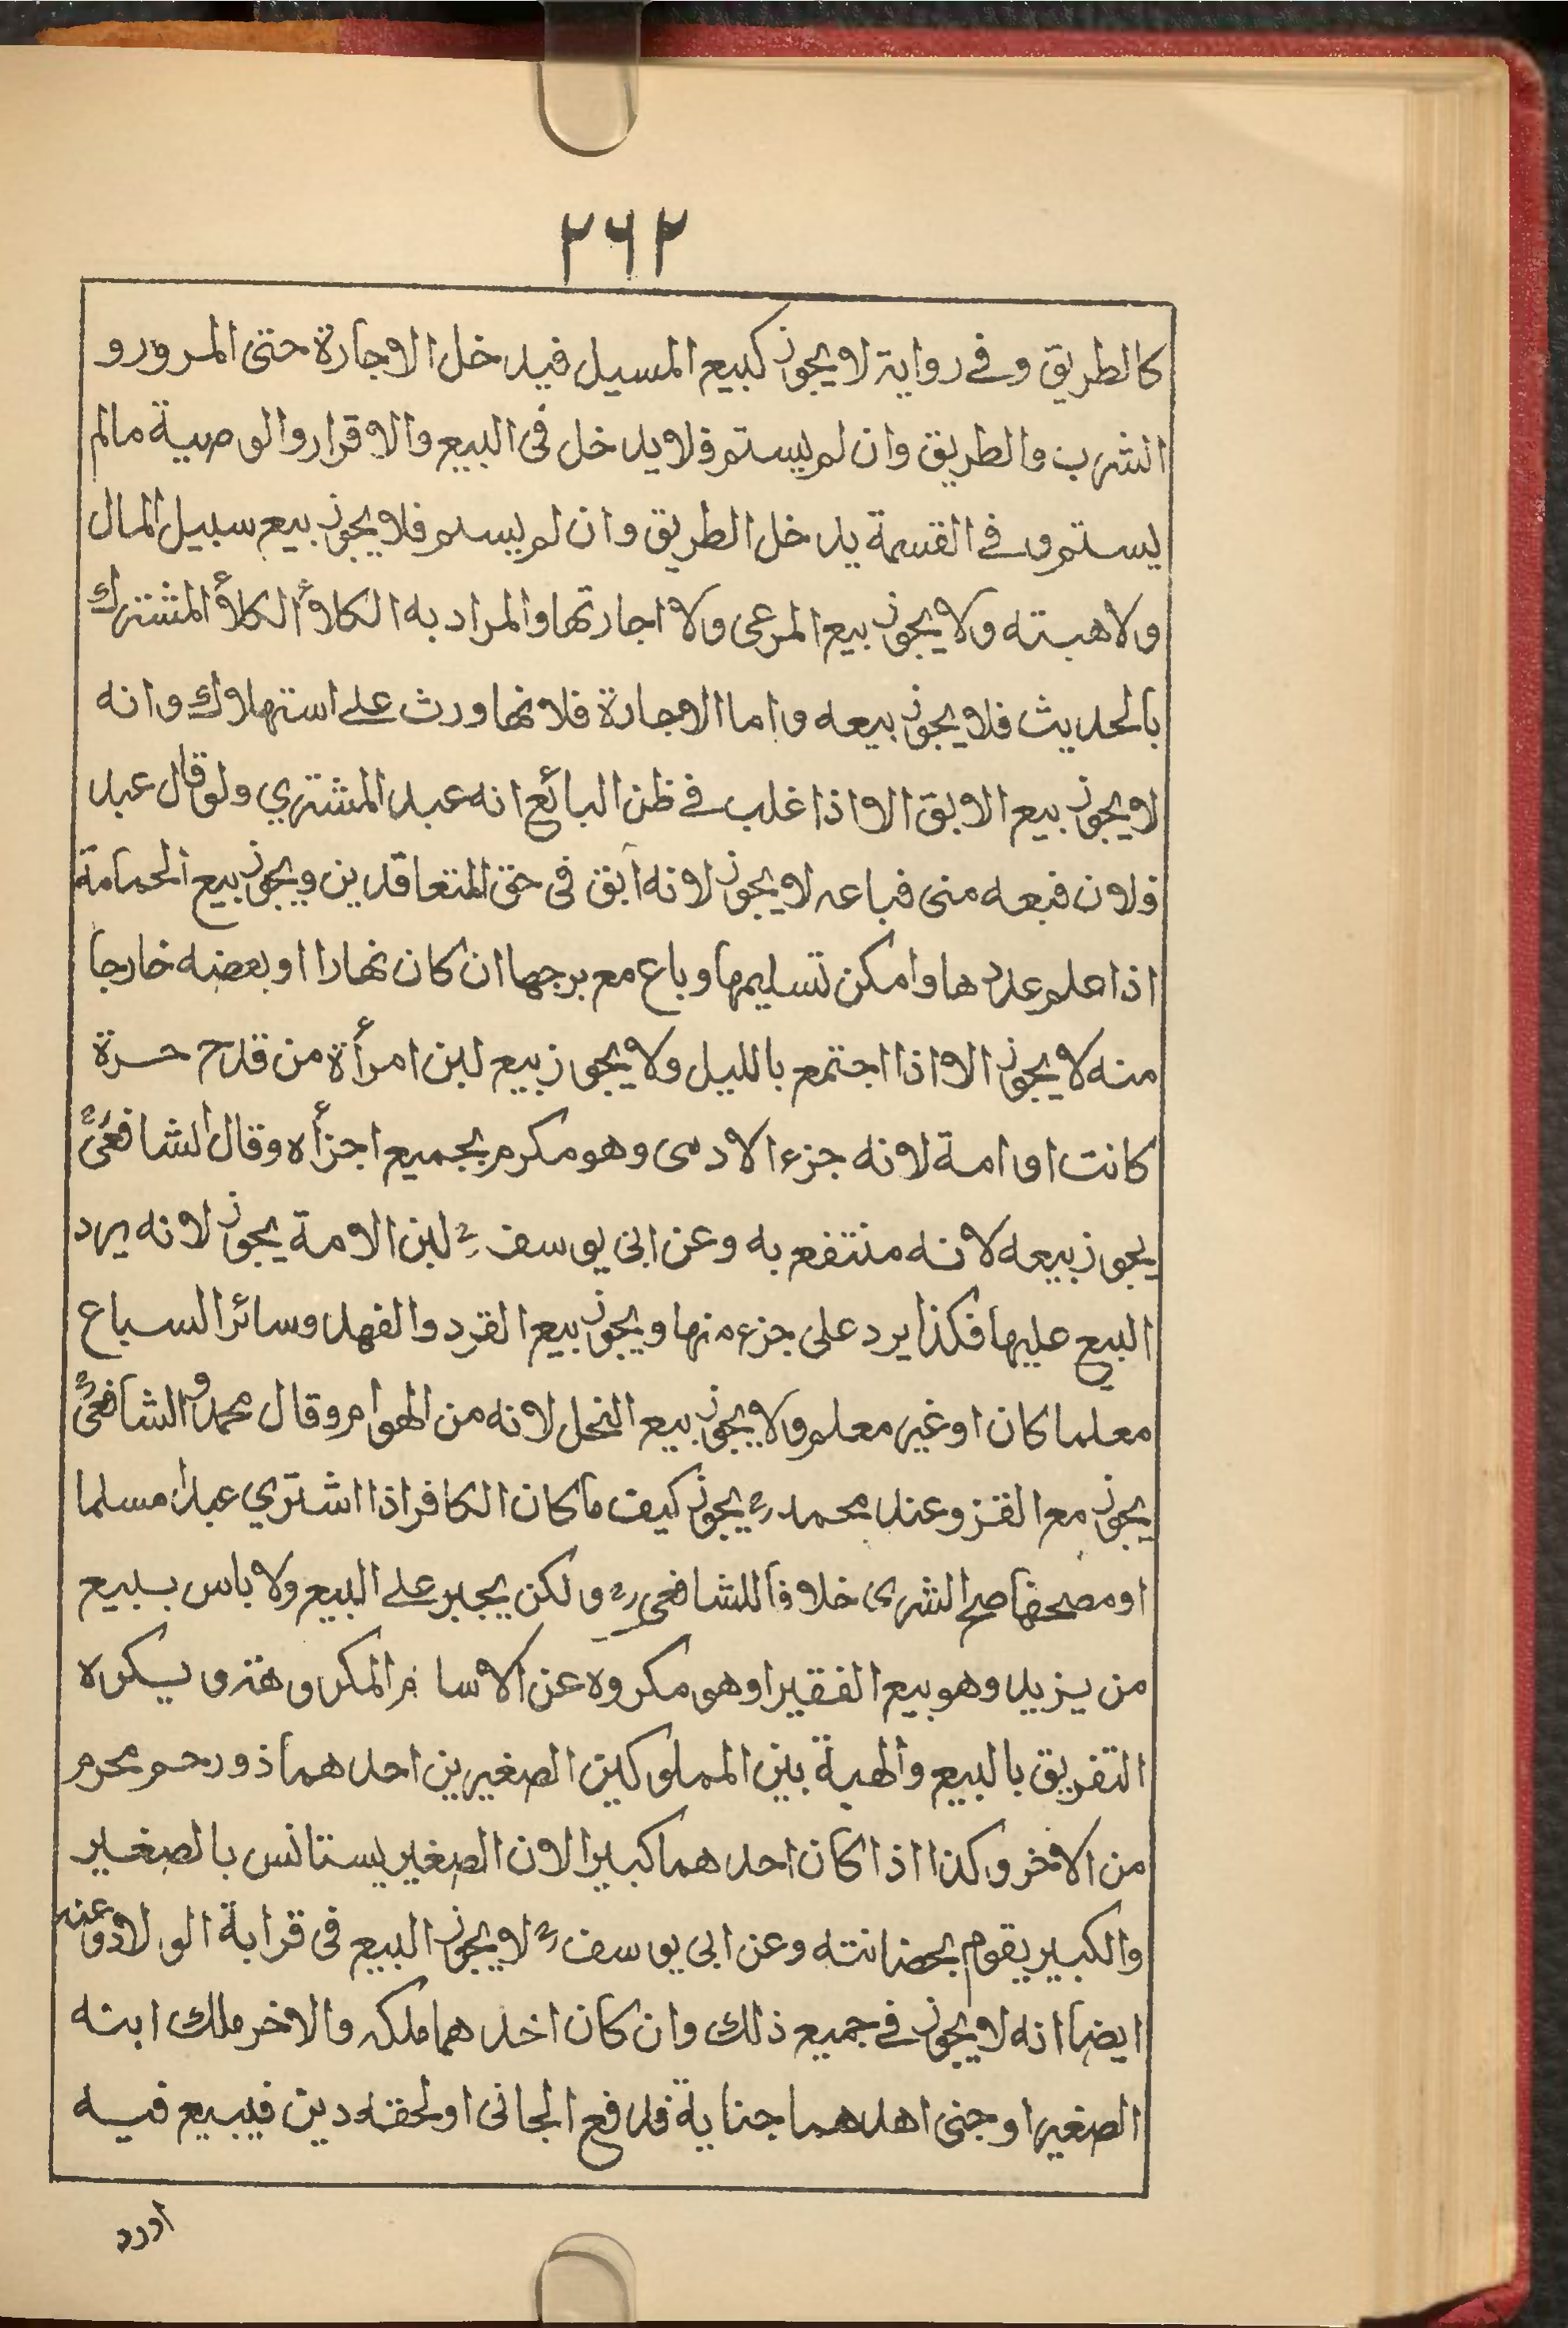 ٢٦٢
كالطريق وفي رواية لا يجوز كبيع المسيل فيدخل الاجارة حتى المرور و
الشرب والطريق وان لم يستم فلا يدخل فى البيع والاقرار والوصية مالم
يستم وفي القسمة يدخل الطريق وان لم يسلم فلا يجوز بيع سبيل المال
ولا هبته ولا يجوز بيع المرعى ولا اجارتها والمراد به الكلأ الكلأ المشترك
بالحديث فلا يجوز بيعه واما الاجارة فلانها ورث على استهلاك وانه
لا يجوز بيع الابق الا اذا غلب في ظن البائع انه عبد المشتري ولو قال عبد
فلان فبعه منى فباعه لا يجوز لانه ابق فى حق المتعاقدين ويجوز بيع الحمامة
اذا علم عددها وامكن تسليمها وباع مع برجها ان كان نهارا او بعضه خارجا
منه لا يجوز الا اذا اجتمع بالليل ولا يجوز بيع لبن امرأة من قدح حرة
كانت او امة لانه جزء الادمى وهو مكرم بجميع اجزأه وقال الشافعىؒ
يجوز بيعه لانه منتفع به وعن ابى يوسفؒ لبن الامة يجوز لانه يرد
البيع عليها فكذا يرد على جزء منها ويجوز بيع القرد والفهد وسائر السباع
معلما كان او غير معلم ولا يجوز بيع النحل لانه من الهوام وقال محمد والشافعىؒ
يجوز مع القز وعند محمدؒ يجوز كيف ما كان الكافر اذا اشتري عبدا مسلما
او مصحفا صح الشرى خلافا للشافعىؒ ولكن يجبر على البيع ولا باس ببيع
من يزيد وهو بيع الفقيرا وهو مكروه عن المكر ويكره
التفريق بالبيع والهبة بين المملوكين الصغيرين احدهما ذو رحم محرم
من الاخر وكذا اذا كان احدهما كبيرا لان الصغير يستانس بالصغير
والكبير يقوم بحضانته وعن ابى يوسفؒ لا يجوز البيع فى قرابة الولاد وعنه
ايضا انه لا يجوز في جميع ذلك وان كان اخدهما ملكه والاخر ملك ابنه
الصغير او جنى اهدهما جناية فدفع الجانى او لحقه دين فيبيع فيه